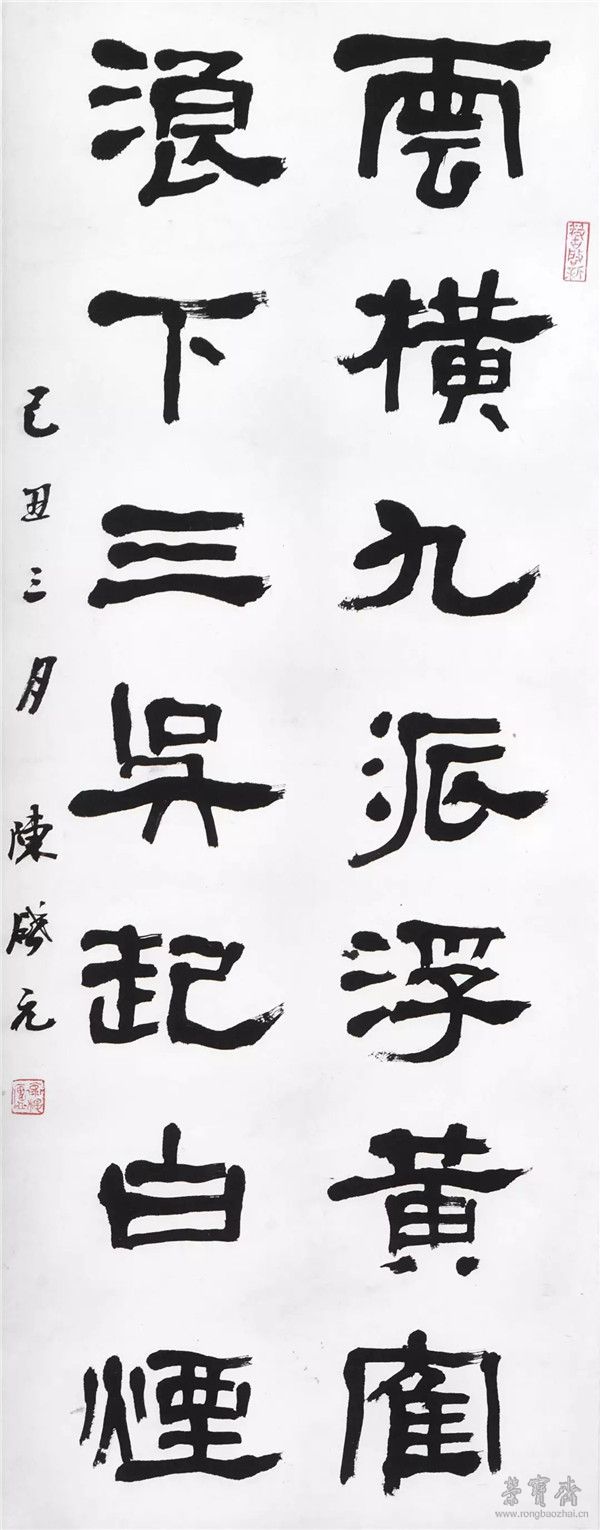 雲橫九派浮黃隺
浪下三吳起白煙
己丑三月 陳啟元
榮寶齋
www.rongbaozhai.cn